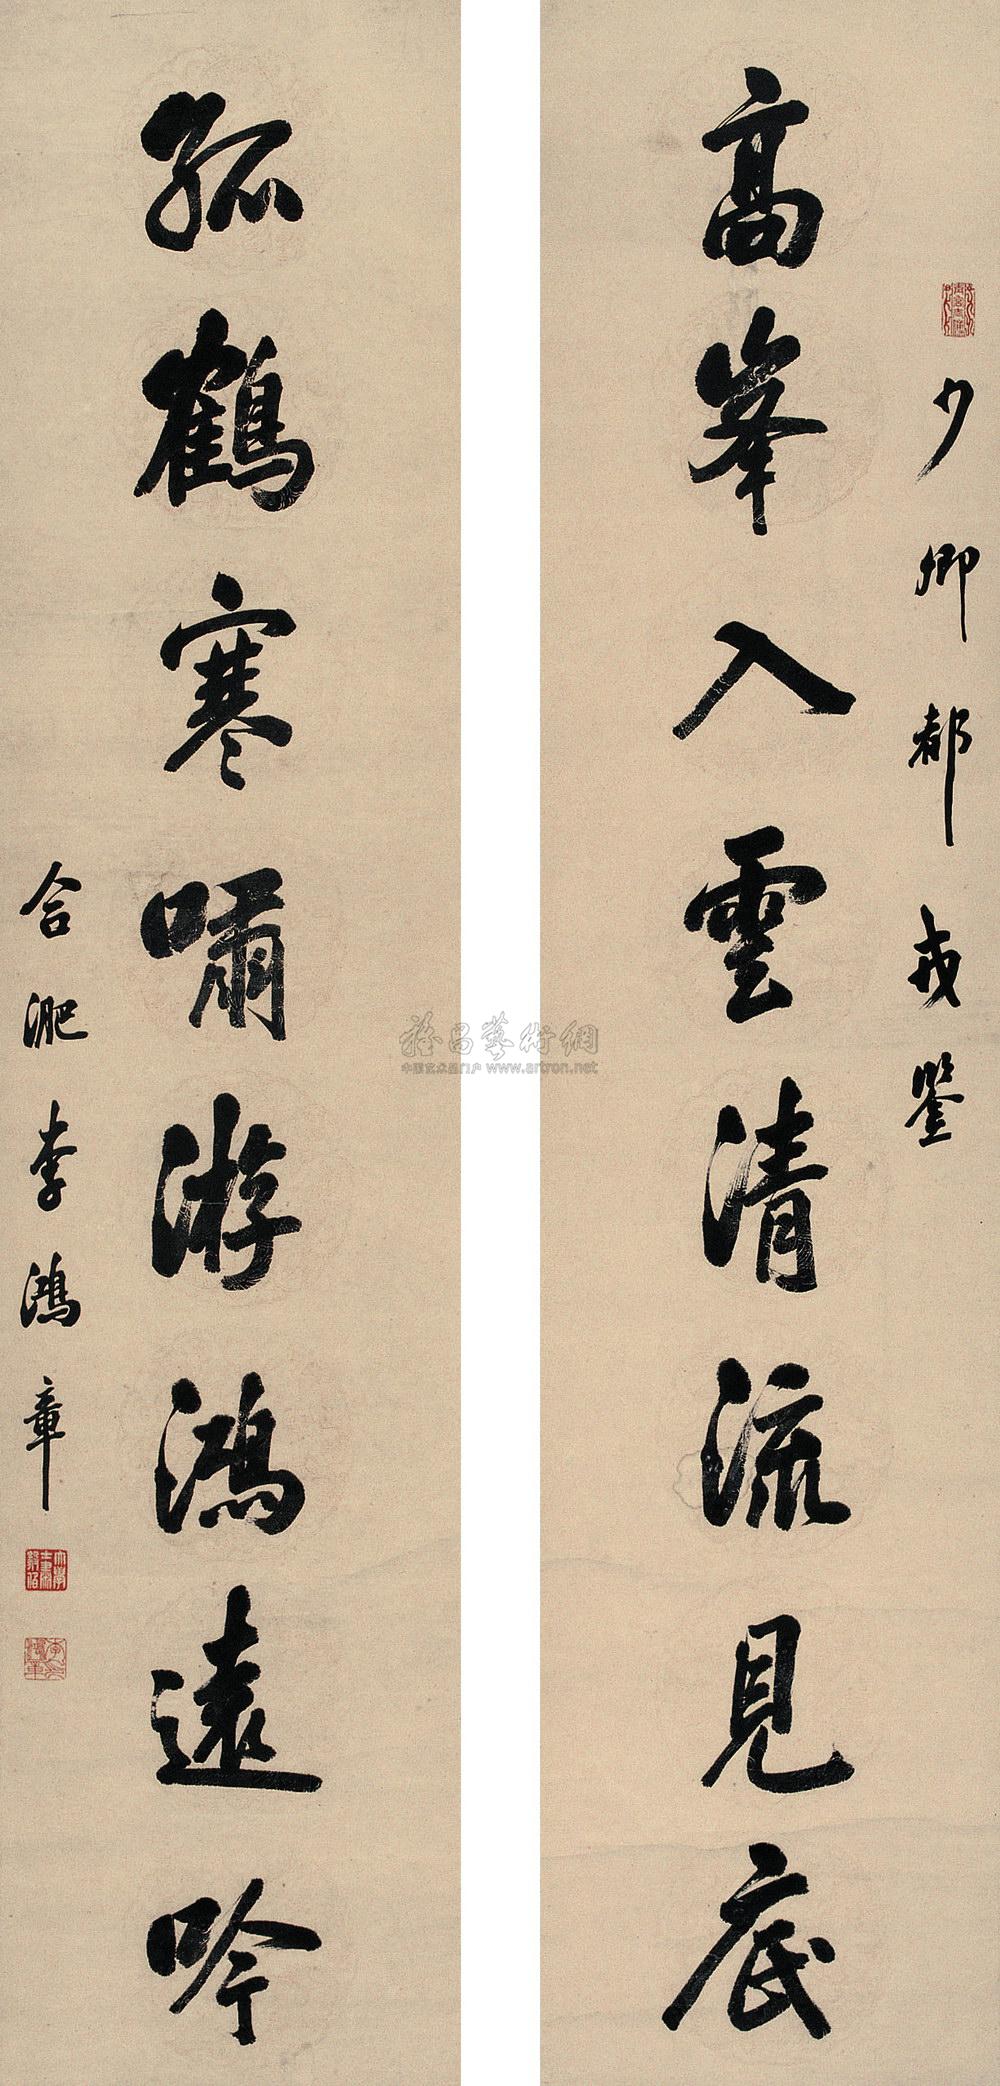 少卿都戎鉴
高峯入雲清流見底
孤鶴寒嘯游鴻遠吟
合淝李鴻章
雅昌藝術網
中国艺术品门户 www.artron.net